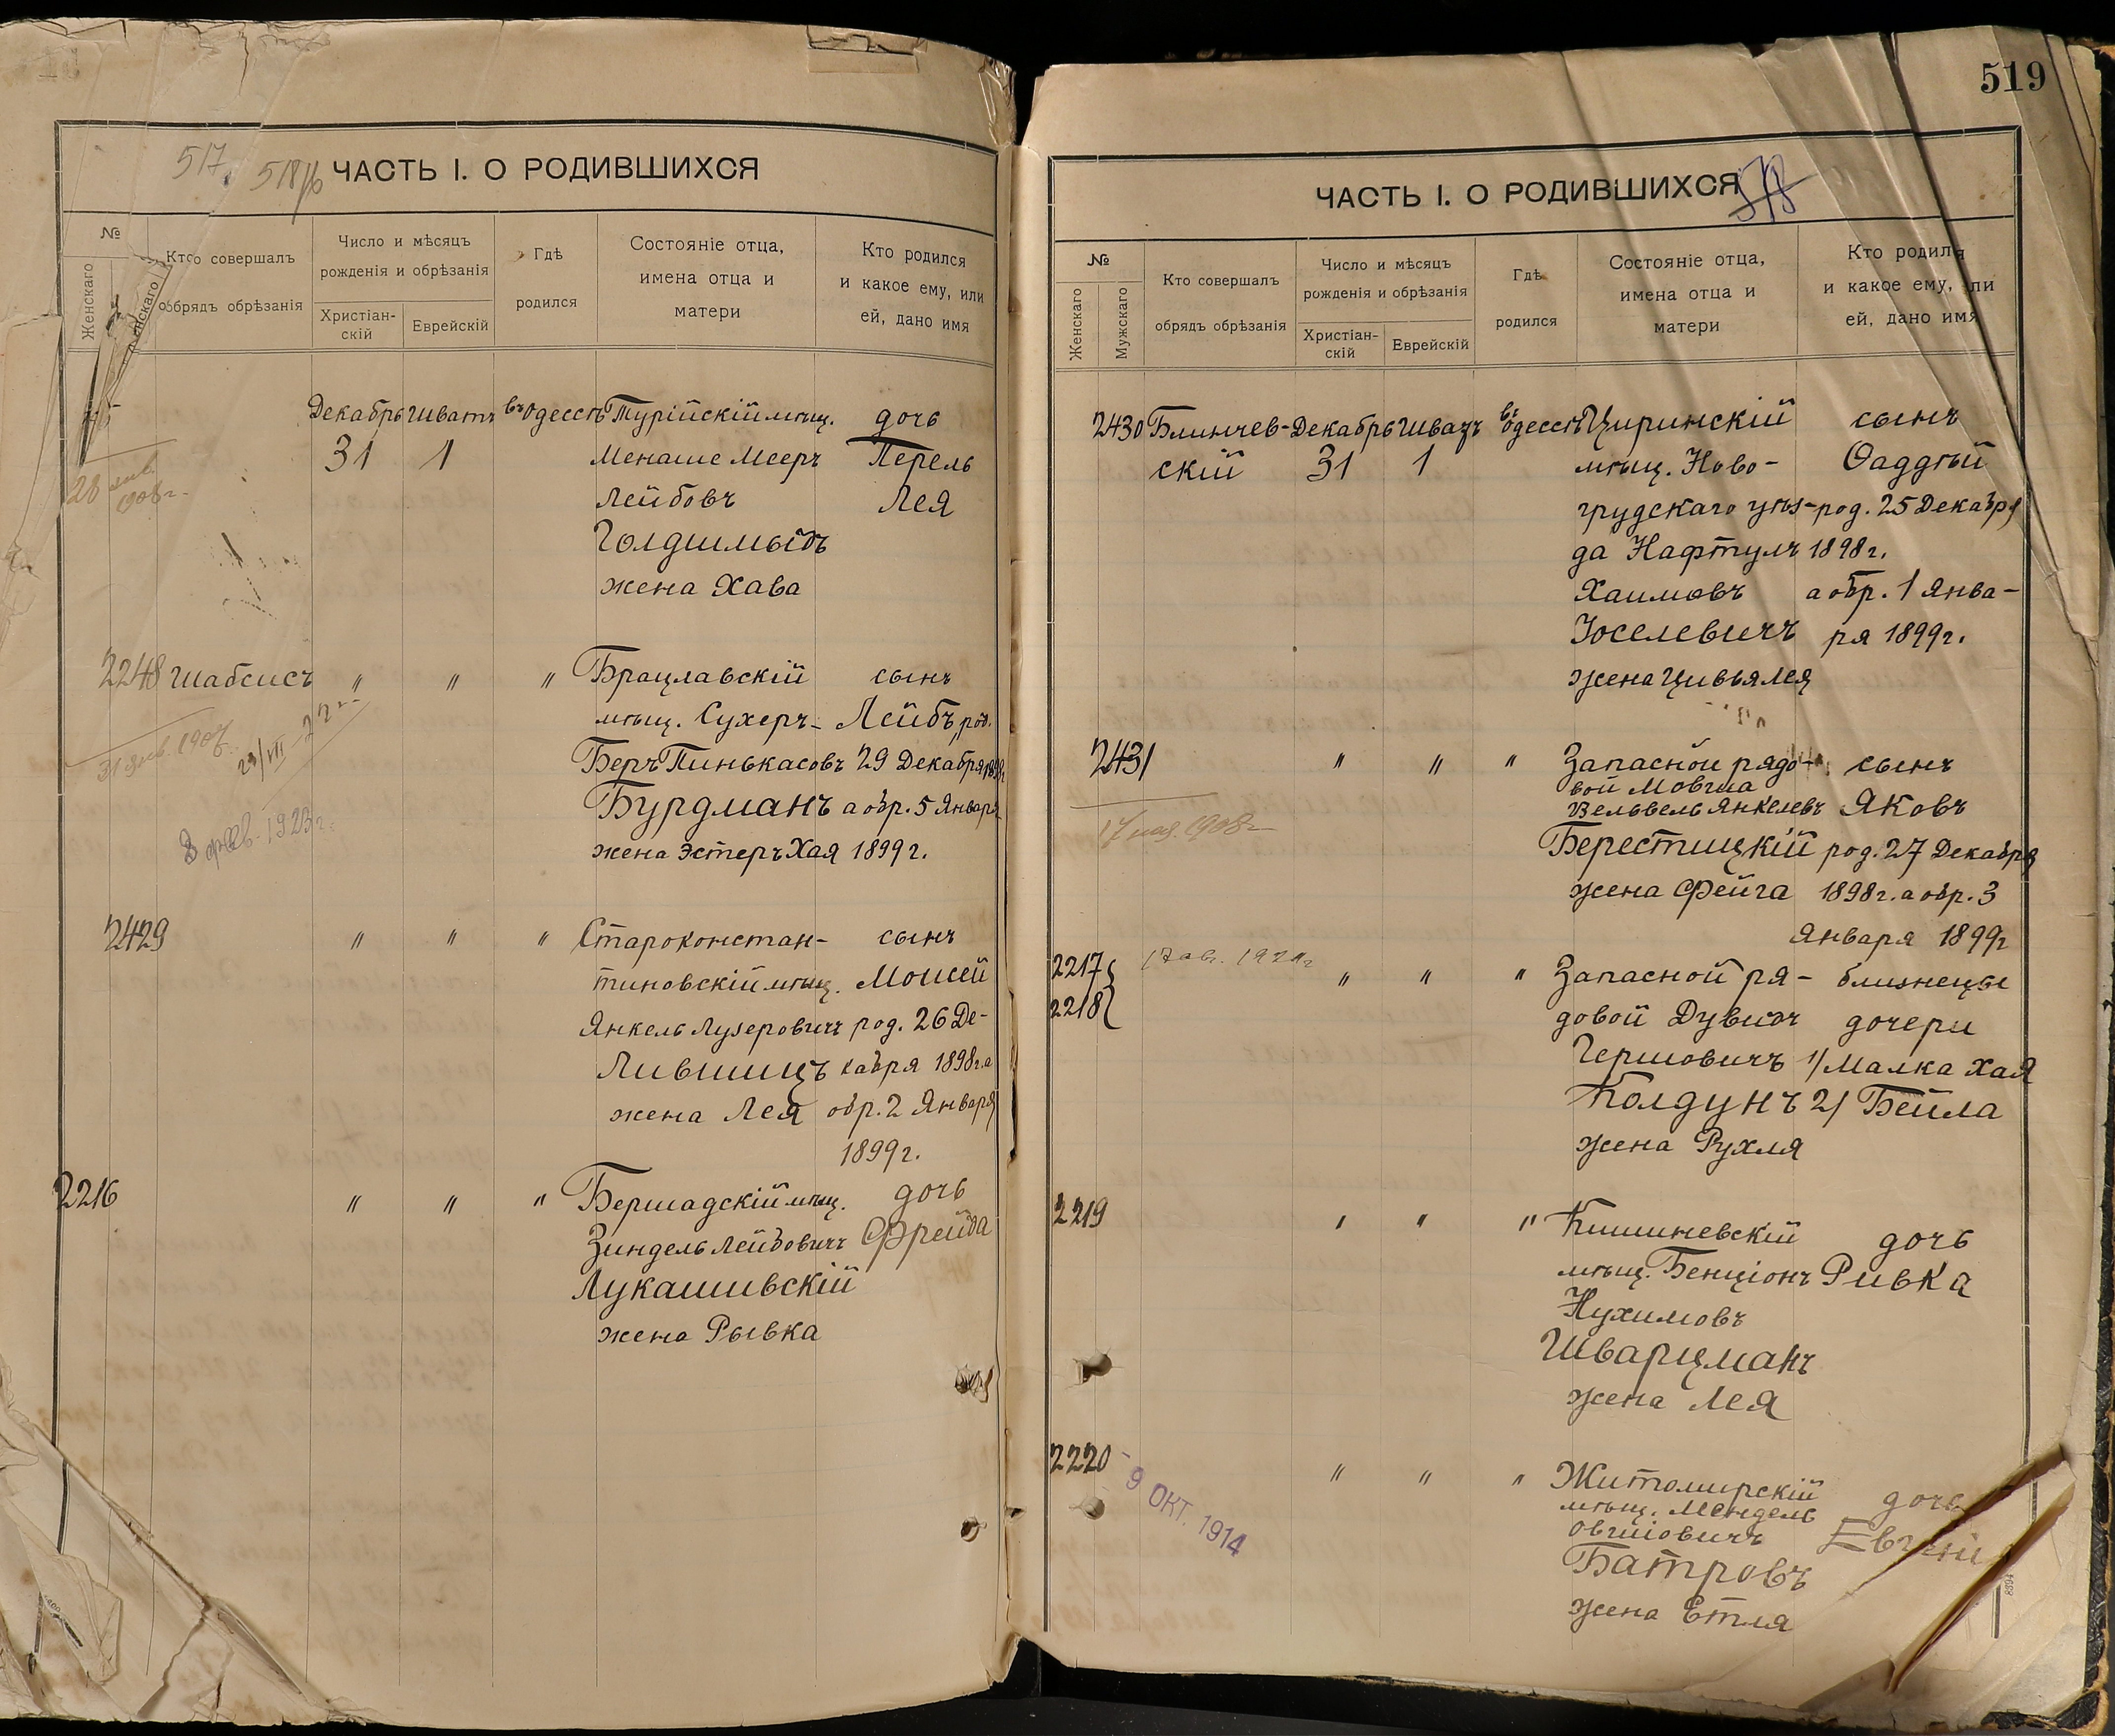 517
518
ЧАСТЬ I. О РОДИВШИХСЯ
№
Женскаго
Кто совершалъ
обрядъ обрѣзанія
Число и мѣсяцъ
рожденія и обрѣзанія
Христіан-
скій
Еврейскій
Гдѣ
родился
Состояніе отца,
имена отца и
матери
Кто родился
и какое ему, или
ей, дано имя
Декабрь Шватъ въ Одессѣ Турійскій мѣщ. дочь
31 1 Менаше Мееръ Перель
Лейбовъ Лея
Голдшмыдъ
жена Хава
28 1908 г.
2248 Шабсисъ " " " Брацлавскій сынъ
мѣщ. Сухеръ- Лейбъ, род.
Беръ Пинькасовъ 29 Декабря 1898 г.
Бурдманъ а обр. 5 Января
жена Эстеръ Хая 1899 г.
31 янв. 1907
23/VII
8 фев. 1923 г.
2429 " " " Староконстан- сынъ
тиновскій мѣщ. Моисей
Янкель Лузеровичъ род. 26 Де-
Лившицъ кабря 1898 г. а
жена Лея обр. 2 Января
1899 г.
2216 " " " Бершадскій мѣщ. дочь
Зиндель Лейбовичъ Фрейда
Лукашивскій
жена Рывка
519
578
ЧАСТЬ I. О РОДИВШИХСЯ
№
Женскаго
Мужскаго
Кто совершалъ
обрядъ обрѣзанія
Число и мѣсяцъ
рожденія и обрѣзанія
Христіан-
скій
Еврейскій
Гдѣ
родился
Состояніе отца,
имена отца и
матери
Кто родился
и какое ему, или
ей, дано имя
2430 Блинчев- Декабрь Шватъ въ Одессѣ Циринскій сынъ
скій 31 1 мѣщ. Ново- Фаддѣй
грудскаго уѣз- род. 25 Декабря
да Нафтулъ 1898 г.
Хаимовъ а обр. 1 Янва-
Іоселевичъ ря 1899 г.
жена Цивья Лея
2431 " " " Запасной рядо- сынъ
вой Мовша
Вельвель Янкелевъ Яковъ
Берестицкій род. 27 Декабря
жена Фейга 1898 г. а обр. 3
Января 1899 г
17 1908 г.
2217 " " " Запасной ря- близнецы
2218 довой Дувидъ дочери
Гершовичъ 1/ Малка Хая
Колдунъ 2/ Бейла
жена Рухля
2219 " " " Кишиневскій дочь
мѣщ. Бенціонъ Ривка
Нухимовъ
Шварцманъ
жена Лея
2220 " " " Житомирскій дочь
мѣщ. Мендель
Овшіовичъ
Батровъ
жена Етля
- 9 ОКТ. 1914